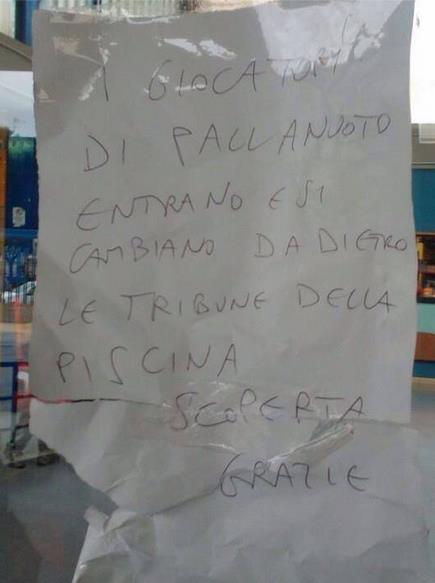 I GIOCATORI
DI PALLANUOTO
ENTRANO E SI
CAMBIANO DA DIETRO
LE TRIBUNE DELLA
PISCINA
SCOPERTA
GRAZIE